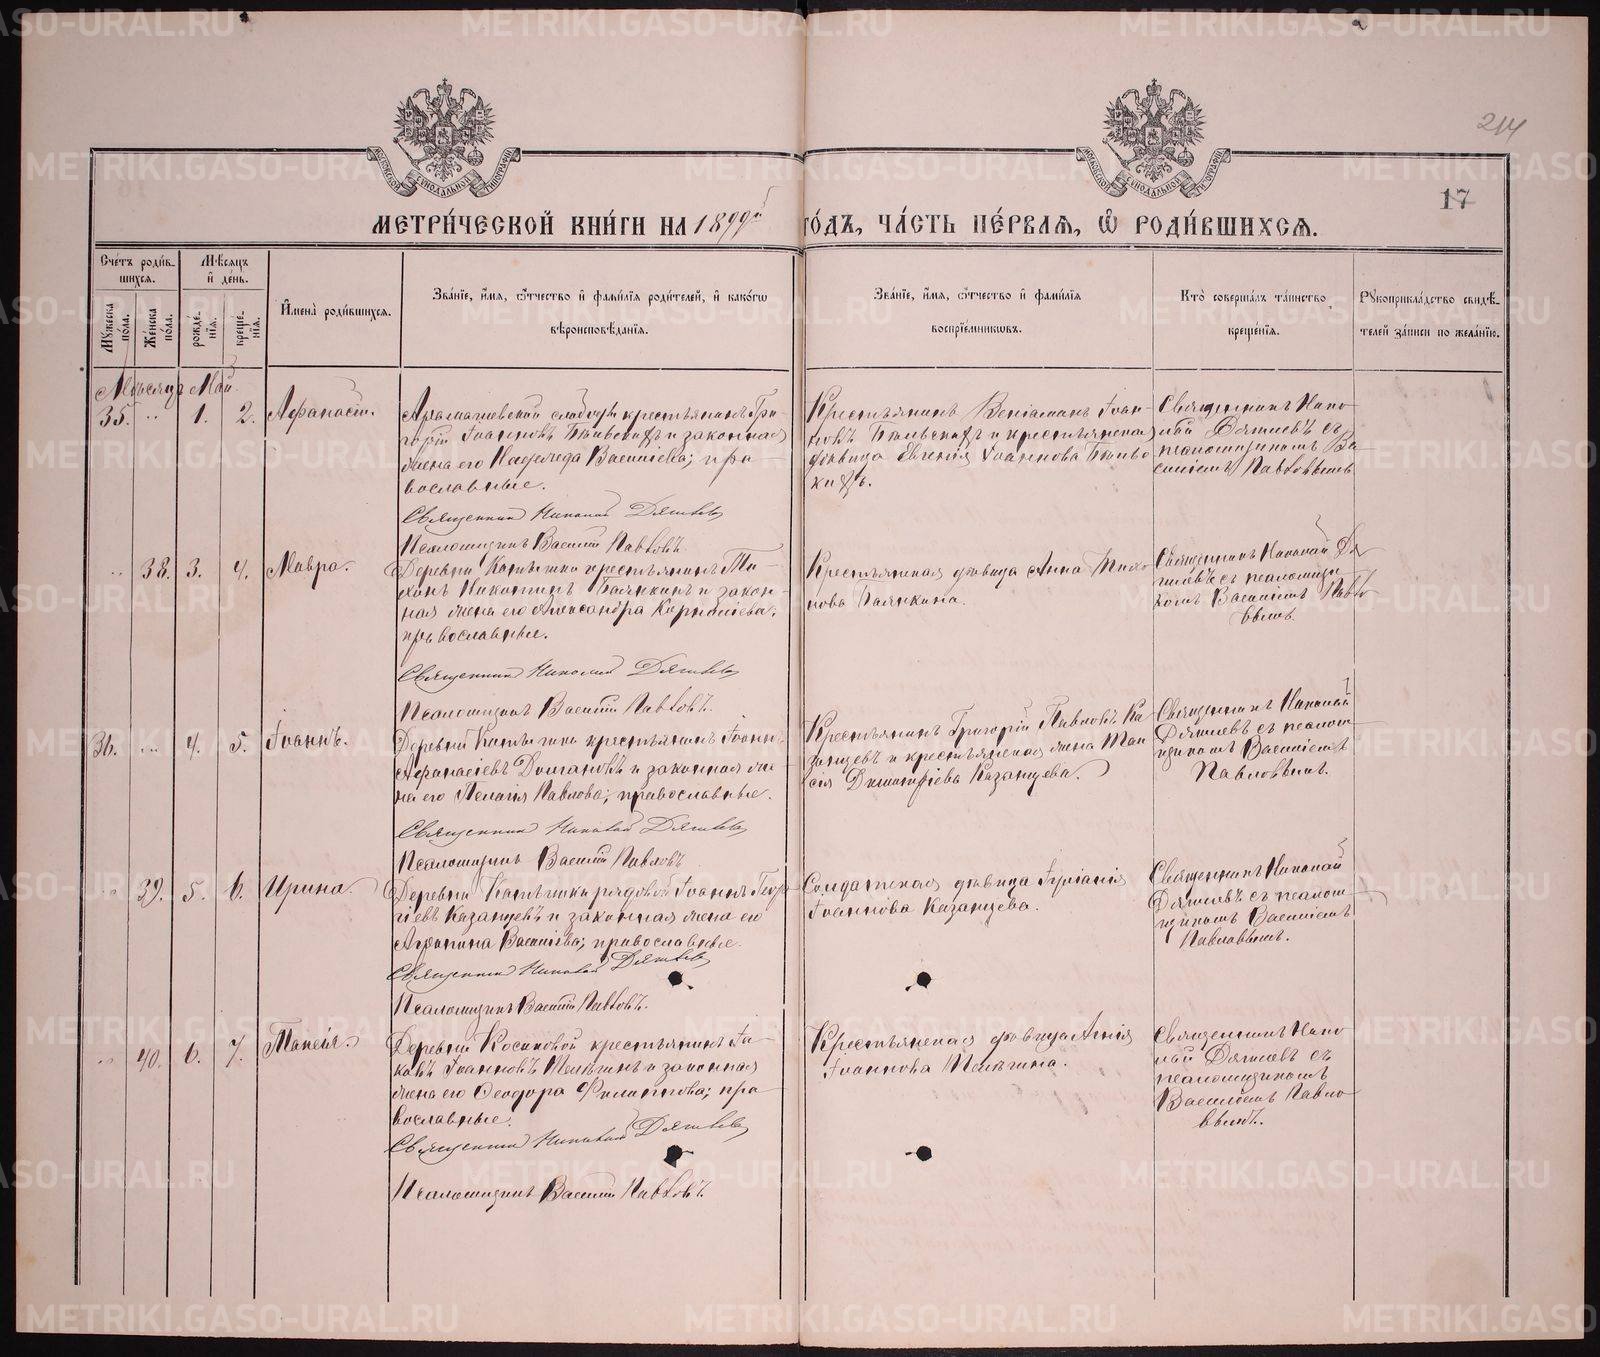 214
17
МЕТРИ́ЧЕСКОЙ КНИ́ГИ НА 1899й ГО́ДЪ, ЧА́СТЬ ПЕ́РВАЯ, Ѡ РОДИ́ВШИХСѦ.
Сче́тъ роди́в-
шихсѧ.
Мѣсѧцъ
и де́нь.
Мꙋжеска
по́ла.
Же́нска
по́ла.
рожде-
нїѧ.
креще-
нїѧ.
Имена̀ роди́вшихсѧ.
Зва́нїе, и́мѧ, ѻтчество и фами́лїѧ роди́телей, и како́гѡ
вѣроисповѣ́данїѧ.
Зва́нїе, и́мѧ, ѻтчество и фами́лїѧ
воспрїе́мникѡвъ.
Кто̀ соверша́лъ та́инство
креще́нїѧ.
Рꙋкоприкла́дство свидѣ́-
телей за́писи по жела́нїю.
Мѣсяцъ Май
35. " 1. 2. Аѳанасій.
Арамашевской слободы крестьянинъ Гри-
горій Іоанновъ Бѣльскихъ и законная
жена его Надежда Васильева; пра-
вославные.
Священникъ Николай
Псаломщикъ Василій Павловъ.
Крестьянинъ Веніаминъ Іоан-
новъ Бѣльскихъ и крестьянская
дѣвица Евгенія Іоаннова Бѣльс-
кихъ.
Священникъ Нико-
лай съ
псаломщикомъ Ва-
силіемъ Павловымъ
" 38. 3. 4. Мавра.
Деревни крестьянинъ Ти-
хонъ Никитинъ и закон-
ная жена его Александра Корнильева;
православные.
Священникъ Николай
Псаломщикъ Василій Павловъ.
Крестьянская дѣвица Анна Тихо-
нова
Священникъ Николай
съ псаломщи-
комъ Василіемъ Павло-
вымъ.
36. " 4. 5. Іоаннъ.
Деревни крестьянинъ Іоаннъ
Аѳанасіевъ и законная же-
на его Пелагія Павлова; православные.
Священникъ Николай
Псаломщикъ Василій Павловъ
Крестьянинъ Григорій Павловъ Ка-
занцевъ и крестьянская жена Таи-
сія Димитріева Казанцева.
Священникъ Николай
съ псалом-
щикомъ Василіемъ
Павловымъ.
" 39. 5. 6. Ирина.
Деревни рядовой Іоаннъ Геор-
гіевъ Казанцевъ и законная жена его
Агрипина Васильева; православные.
Священникъ Николай
Псаломщикъ Василій Павловъ.
Солдатская дѣвица
Іоаннова Казанцева.
Священникъ Николай
съ псалом-
щикомъ Василіемъ
Павловымъ.
" 40. 6. 7. Таисія.
Деревни Косиковой крестьянинъ Іа-
ковъ Іоанновъ и законная
жена его Ѳеодора Филиппова; пра-
вославные.
Священникъ Николай
Псаломщикъ Василій Павловъ.
Крестьянская дѣвица
Іоаннова
Священникъ Нико-
лай съ
псаломщикомъ
Василіемъ Павло-
вымъ.
METRIKI.GASO-URAL.RU